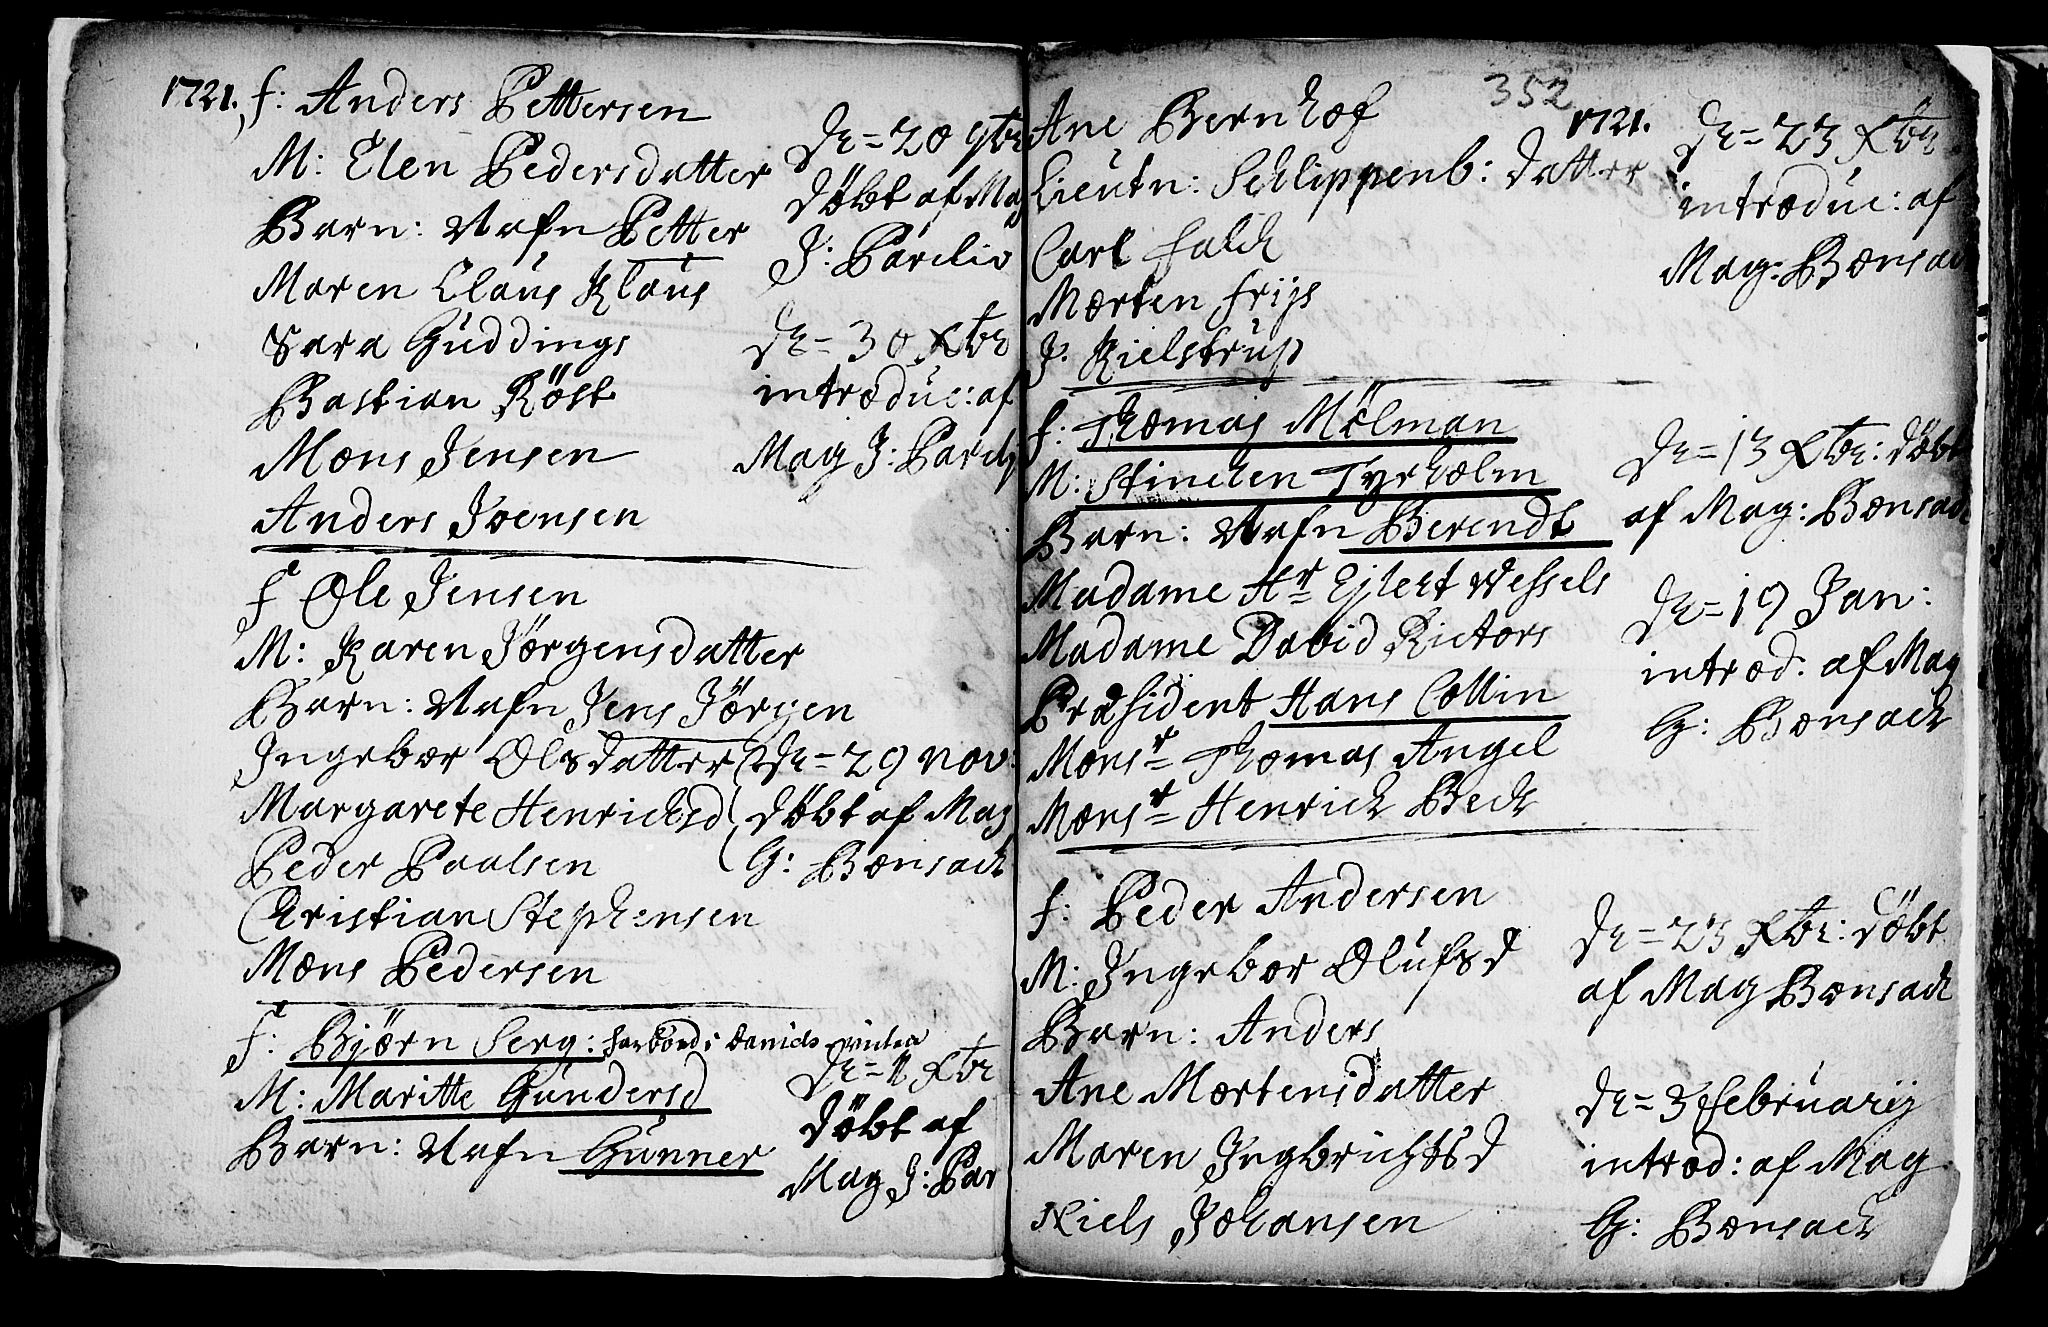 1721. f: Anders Pettersen
M: Elen Pedersdatter
Barn: Nafn Petter
Maren Claus Klaus
Sara Guddings
Bastian Röst
Mons Jensen
Anders Joensen
De = 20 9br
döbt af Mag
J: Parelio
De = 30 Xbr
introduc: af
Mag J: Parely
f Ole Jensen
M: Karen Jörgensdatter
Barn: Nafn Jens Jörgen
Ingebor Olsdatter
Margarete Henrichsd
Peder Paalsen
Christian Stephensen
Mons Pedersen
De = 29 nov:
döbt af Mag
G: Bonsach
f: Björn Serg:
M: Maritte Gundersd
Barn: Nafn Gunner
De = 1 Xbr
döbt af
Mag J: Par
352
1721.
Ane Bernhof
Lieutn: Schlippenb: datter
Carl Falch
Morten Frijs
J. Kielstrup
De = 23 Xbr
introduc: af
Mag: Bonsac
f: Thomas Mölman
M: Stinchen Tyrholm
Barn: Nafn Berendt
Madame Hr Ejlert Wessels
Madame David Rictors
Præsident Hans Collin
Monsr Thomas Angel
Monsr Henrich Bech
De = 13 Xbr: döbt
af Mag: Bonsach
De = 19 Jan:
introd: af Mag
G: Bonsach
f: Peder Andersen
M: Ingebor Olufsd
Barn: Anders
Ane Mortensdatter
Maren Ingbrichtsd
Niels Johansen
De = 23 Xbr: döbt
af Mag Bonsach
De = 3 Februarij
introd: af Mag
G: Bonsach